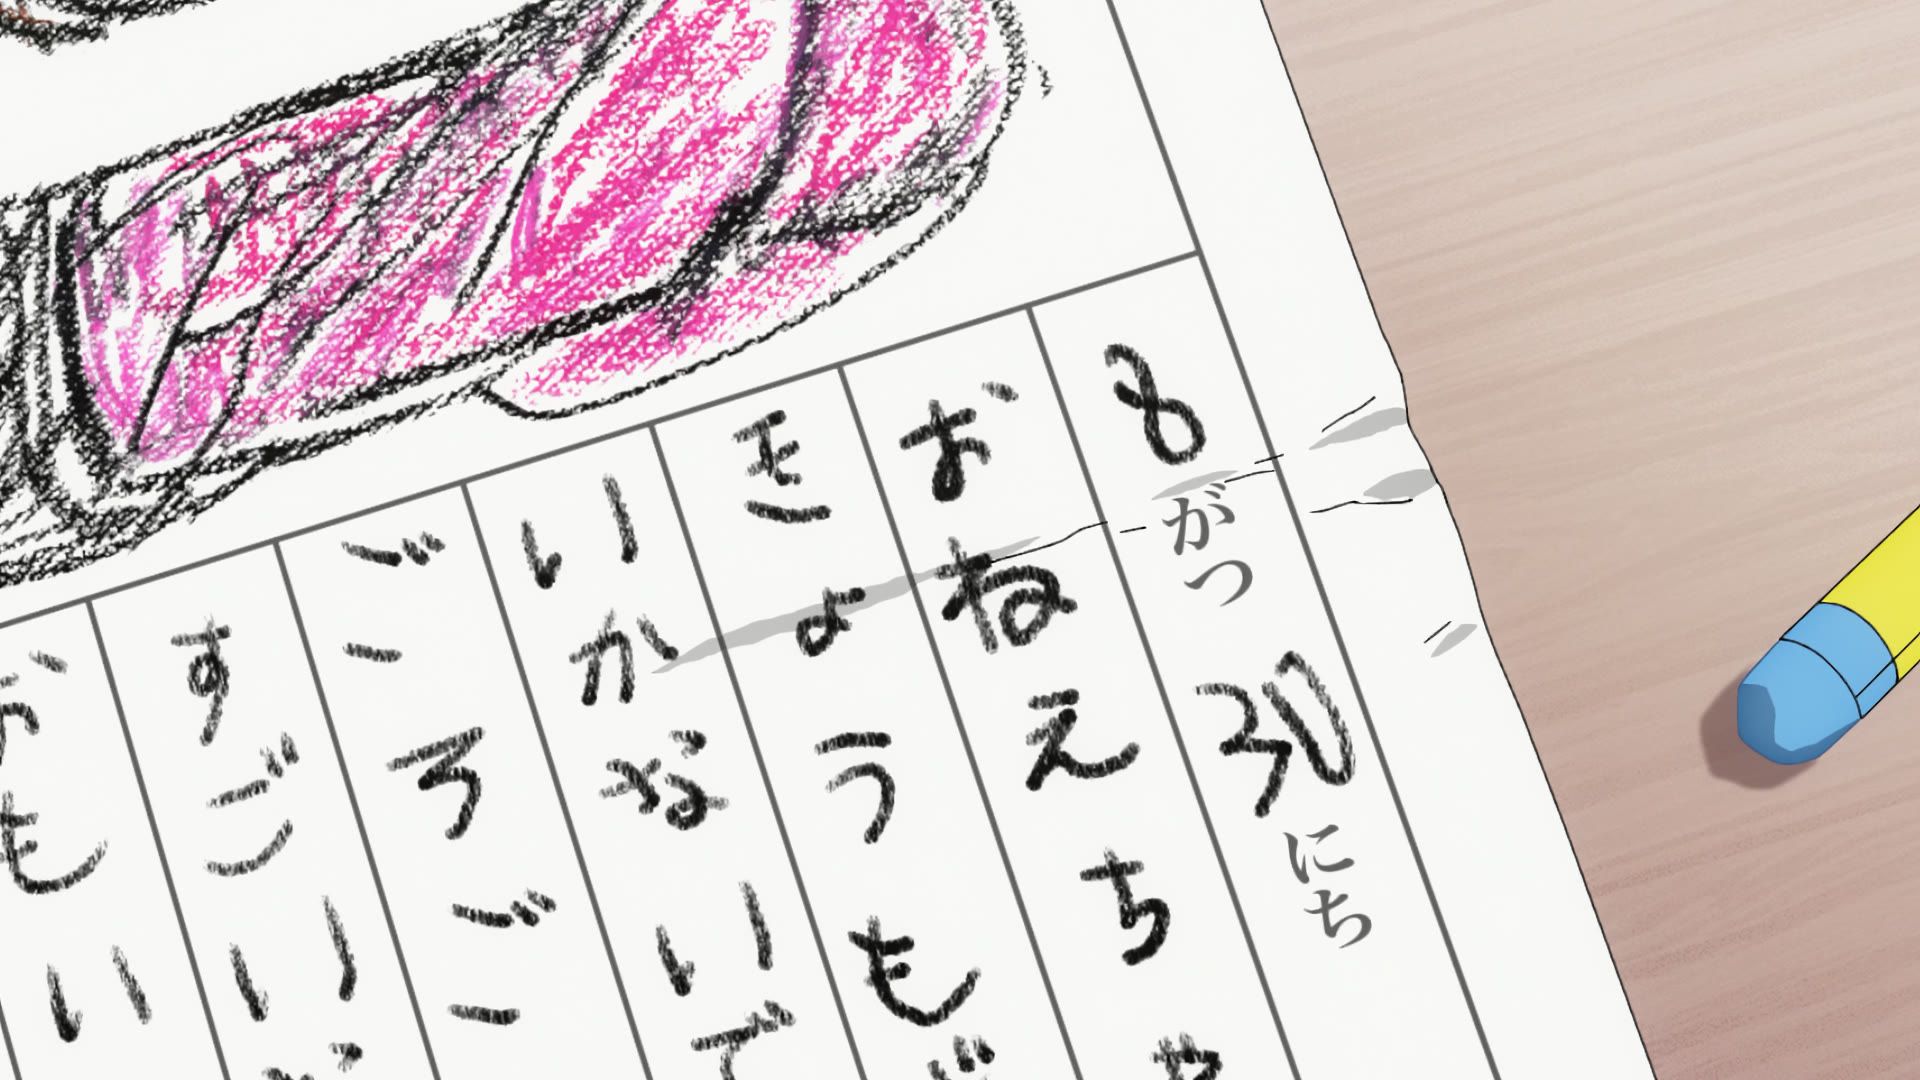 8がつ30にち
おねえち
きょうも
いかないで
ごろご
すごい
おもい